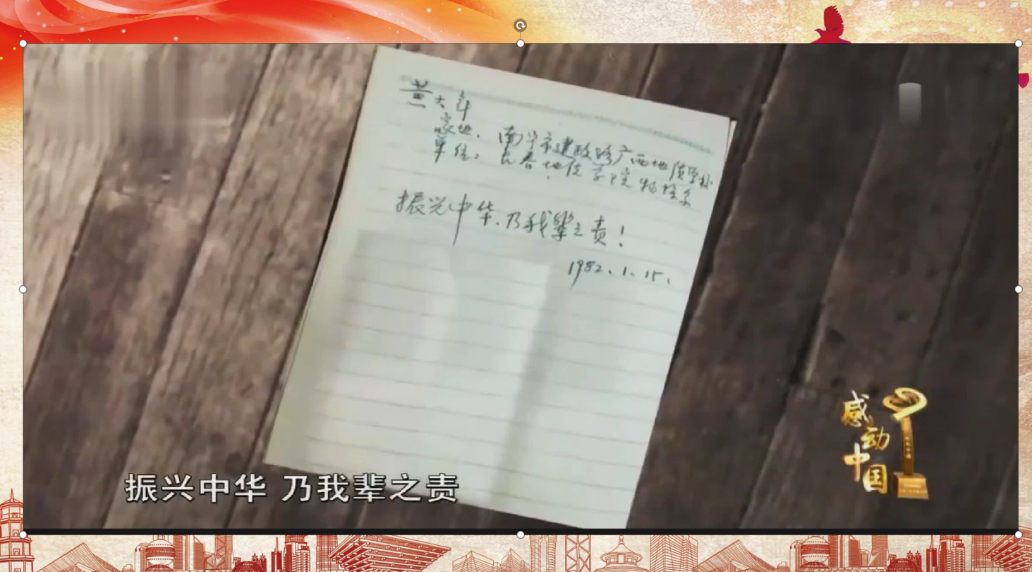 黄大年
家地：南宁市建政路广西地质学校
单位：长春地质学院物探系
振兴中华、乃我辈之责！
1982.1.15.
感动中国
振兴中华 乃我辈之责